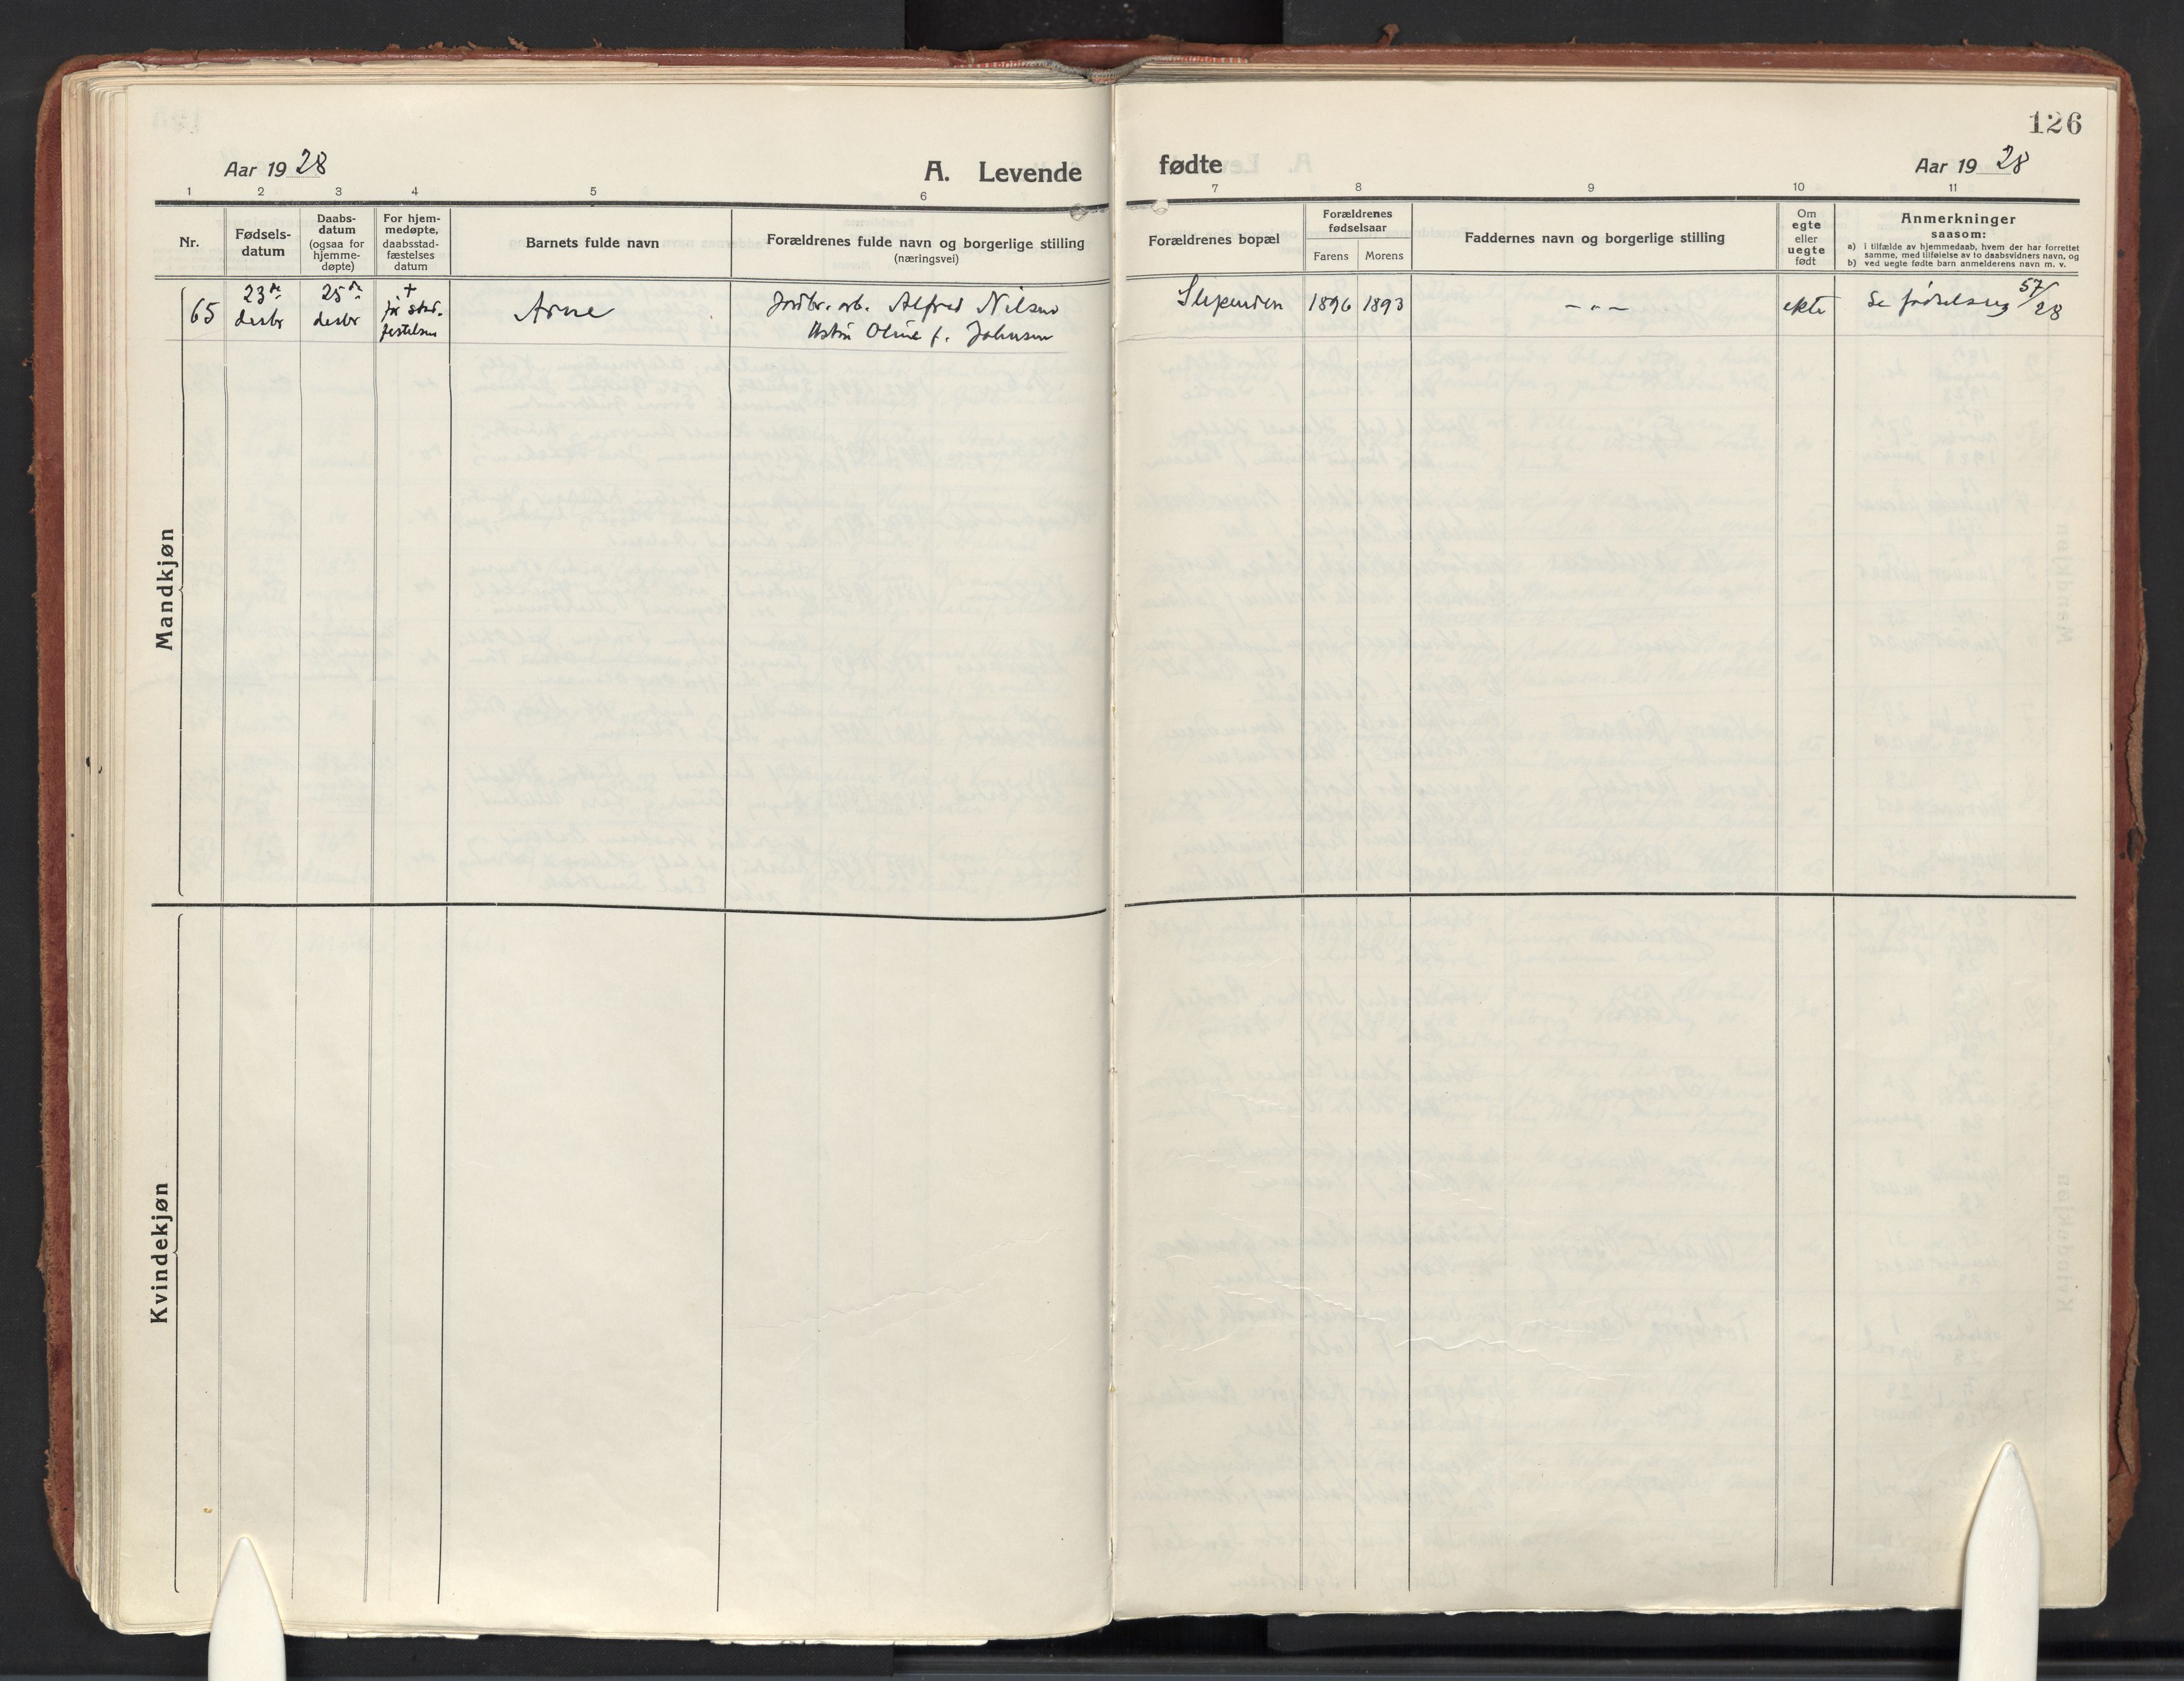 126
Aar 1928
A. Levende fødte
Aar 1928
1 2 3 4 5 6 7 8 9 10 11
Nr.
Fødsels-
datum
Daabs-
datum
(ogsaa for
hjemme-
døpte)
For hjem-
medøpte,
daabsstad-
fæstelses
datum
Barnets fulde navn
Forældrenes fulde navn og borgerlige stilling
(næringsvei)
Forældrenes bopæl
Forældrenes
fødselsaar
Farens Morens
Faddernes navn og borgerlige stilling
Om
egte
eller
uegte
født
Anmerkninger
saasom:
a) i tilfælde av hjemmedaab, hvem der har forrettet
samme, med tilføielse av to daabsvidners navn, og
b) ved uegte fødte barn anmelderens navn m. v.
Mandkjøn
65
23de
desbr
25de
desbr
†
før stad-
festelsen
Arne
Jordbr. arb. Alfred Nilsen
Oline f. Johnsen
Slependen
1896 1893
— " —
ekte
Se fødselsreg 57/28
Kvindekjøn